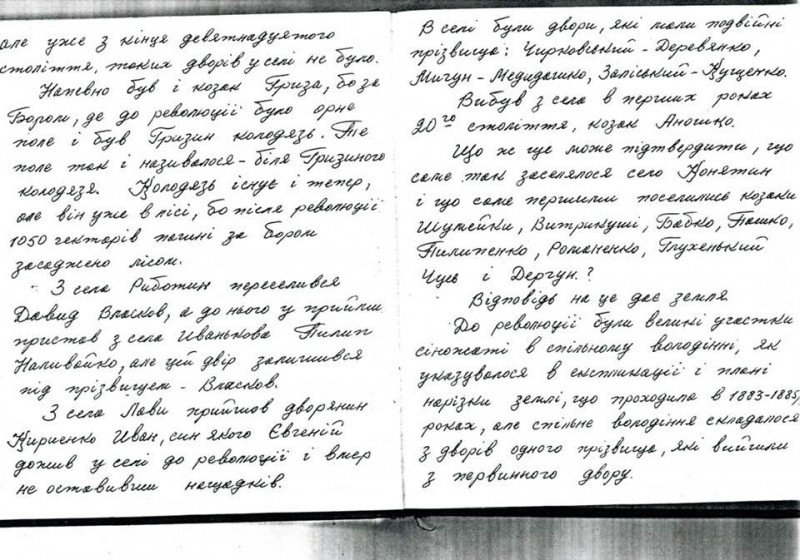 але уже з кінця девятнадцятого
століття, таких дворів у селі не було.
Напевно був і козак Гриза, бо за
Бором, де до революції було орне
поле і був Гризин колодязь. Те
поле так і називалося - біля Гризиного
колодязя. Колодязь існує і тепер,
але він уже в лісі, бо після революції
1050 гектарів пашні за бором
засаджено лісом.
З села Риботин переселився
Давид Власков, а до нього у прийми
пристав з села Иванькова Пилип
Наливайко, але цей двір залишився
під прізвищем - Власков.
З села Лави прийшов дворянин
Кириенко Иван, син якого Євгеній
дожив у селі до революції і вмер
не оставивши нащадків.
В селі були двори, які мали подвійні
прізвища: Чирковський - Деревянко,
Мичун - Медидашко, Заліський - Кущенко.
Вибув з села в перших роках
20го століття, козак Аношко.
Що ж ще може підтвердити, що
саме так заселялося село Конятин
і що саме першими поселились козаки
Шумейки, Витрикуші, Бабко, Пашко,
Пилипенко, Романенко, Глухенький
Чусь і Дергун.?
Відповідь на це дає земля.
До революції були великі участки
сіножаті в спільному володінні, як
указувалося в експликації і плані
нарізки землі, що проходила в 1883-1885,
роках, але спільне володіння складалося
з дворів одного прізвища, які вийшли
з первинного двору.